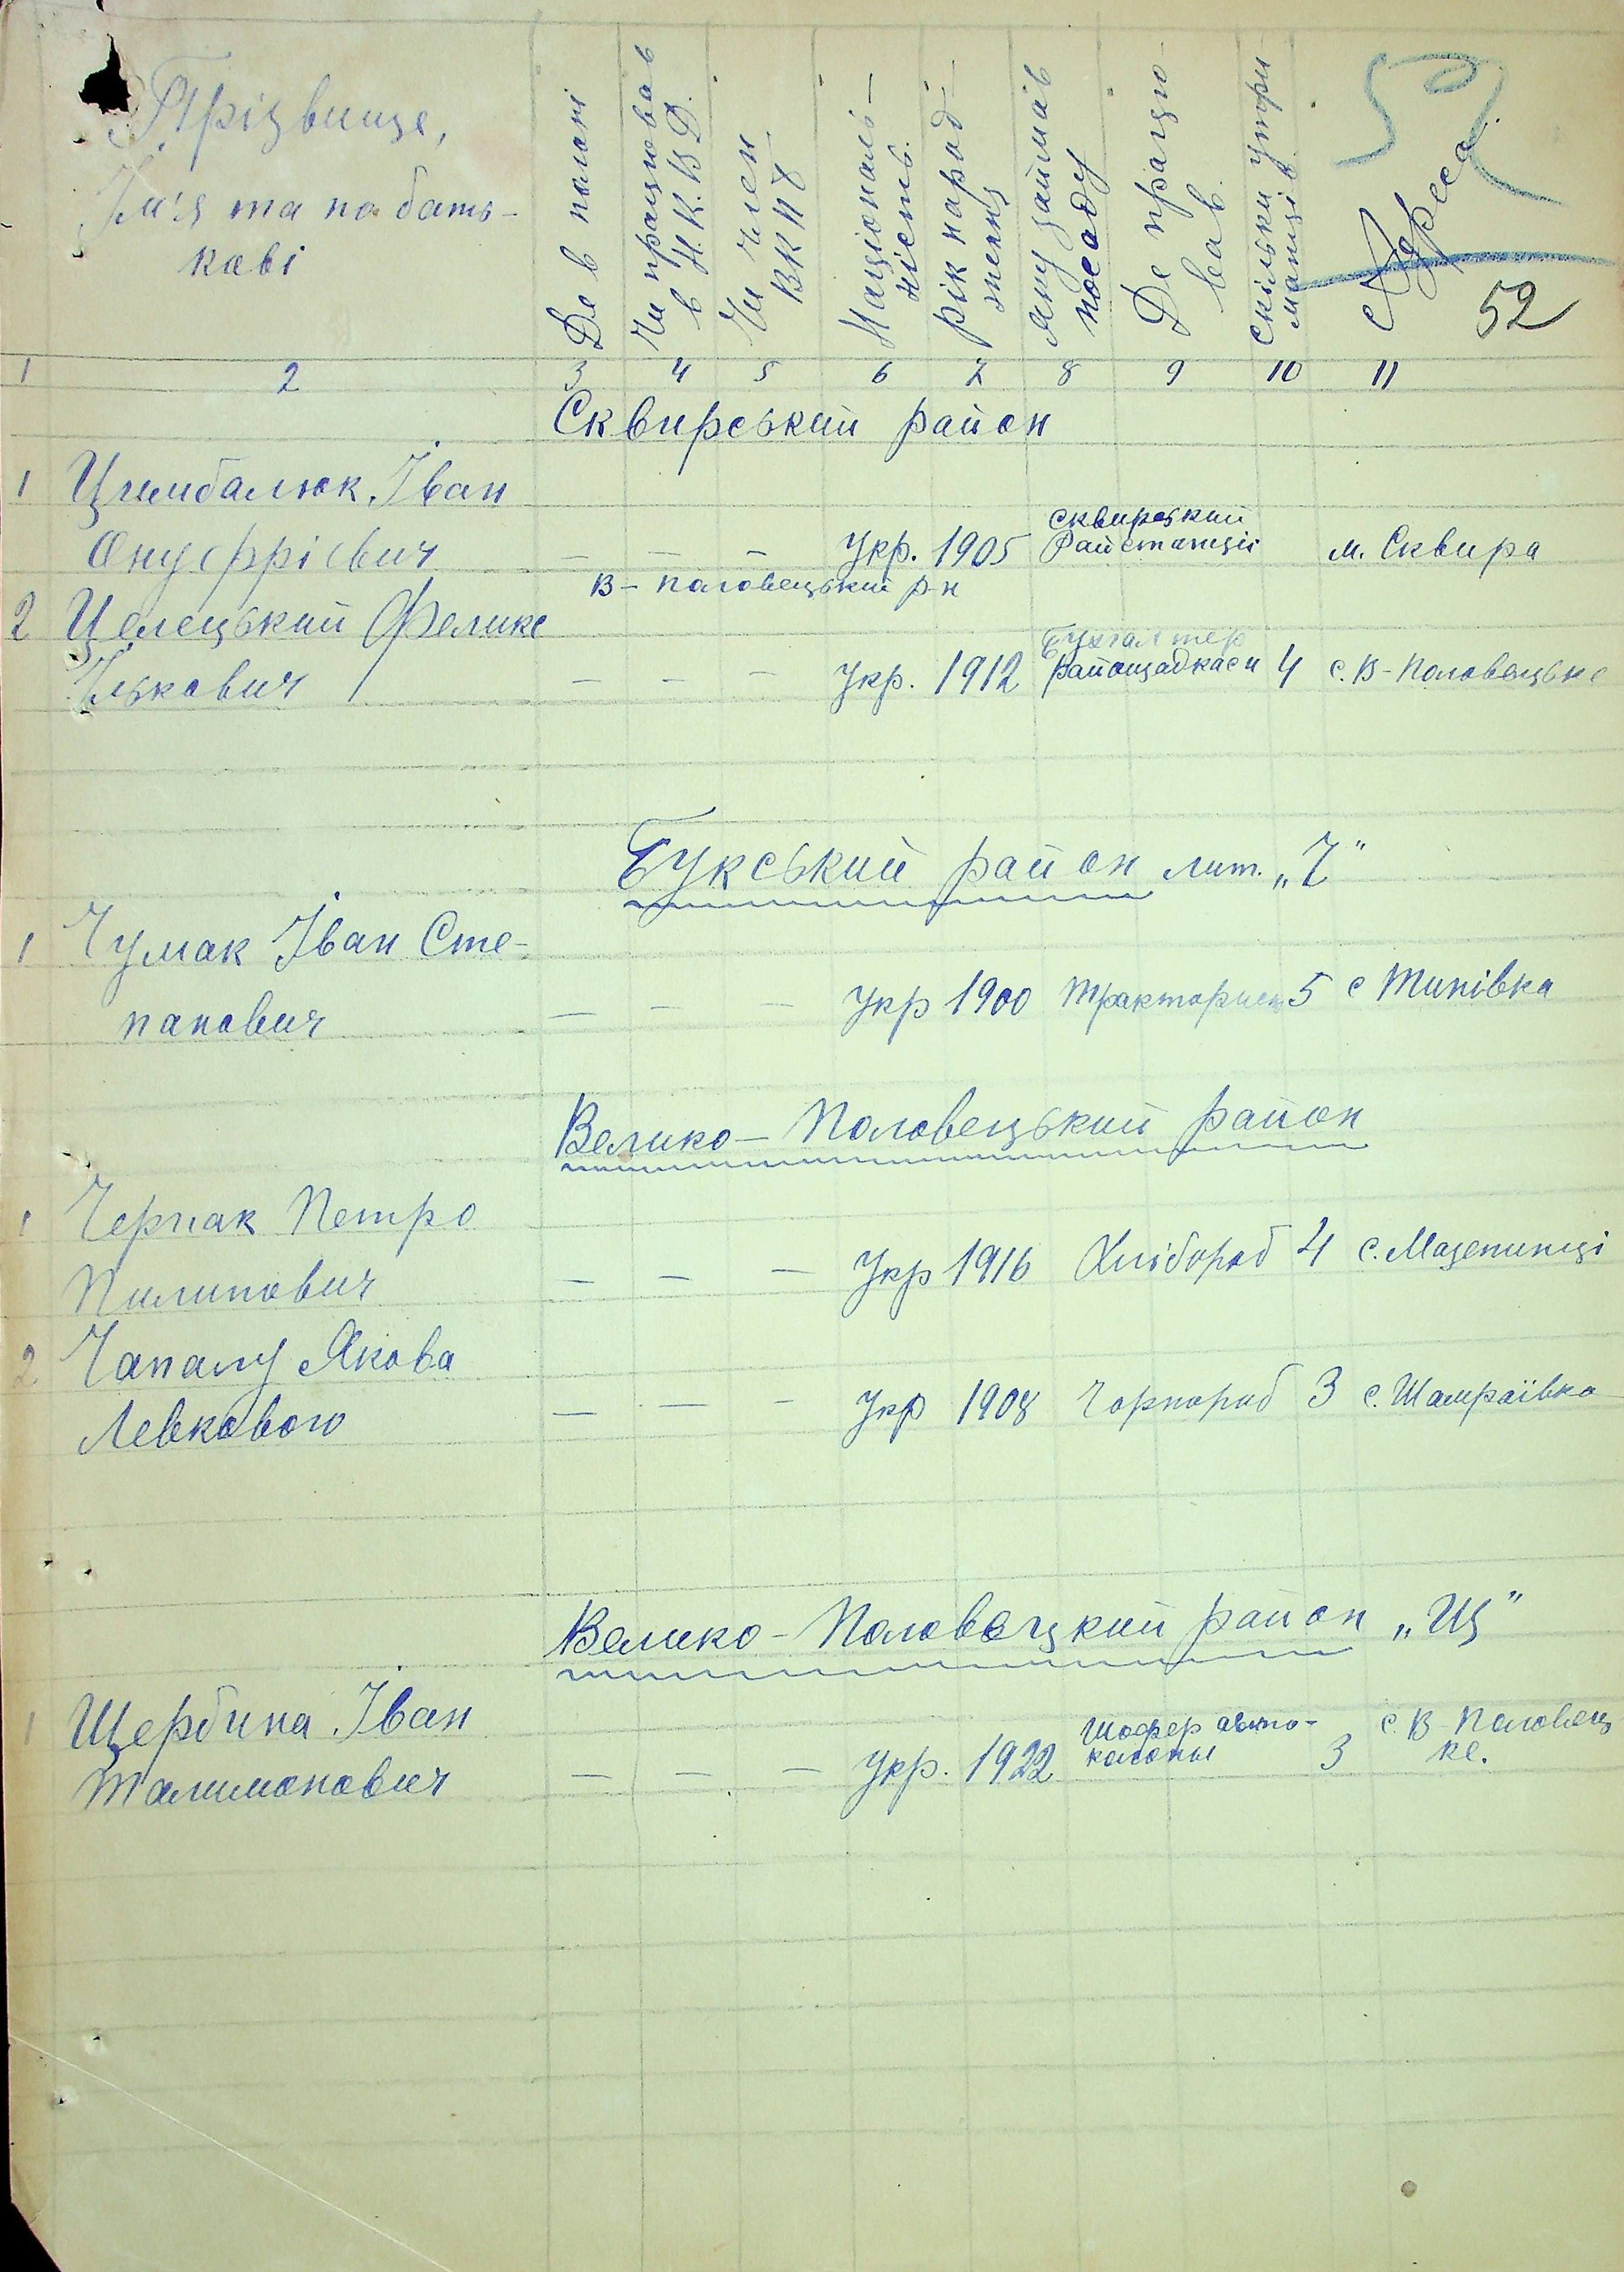 Прізвище,
Ім'я та по бать-
кові
Де в полоні
Чи працював
в Н.К.В.Д.
Чи член
ВКПб
Національ-
ність.
рік народ-
ження
яку займав
посаду
Де працю-
вав.
скільки утри-
манців
Адреса
52
1 2 3 4 5 6 7 8 9 10 11
Сквирський район
1 Цимбалюк Іван
Онуфрієвич — — — Укр. 1905 Сквирський Райстанції м. Сквира
В-Половецький р-н
2 Целецький Феликс
Ількович — — — Укр. 1912 Бухгалтер райощадкаси 4 с. В-Половецьке
Букський район лит. „Ч"
1 Чумак Іван Сте-
панович — — — Укр 1900 Тракторист 5 с Типівка
Велико-Половецький район
1 Черпак Петро
Пилипович — — — Укр 1916 Хлібороб 4 с. Мазепинці
2 Чапалу Якова
Левкового — — — Укр 1908 Чорнороб 3 с. Шамраївка
Велико-Половецкий район „Щ"
1 Щербина Іван
Талимонович — — — Укр. 1922 Шофер авто-
колоны 3 с. В-Половец
ке.